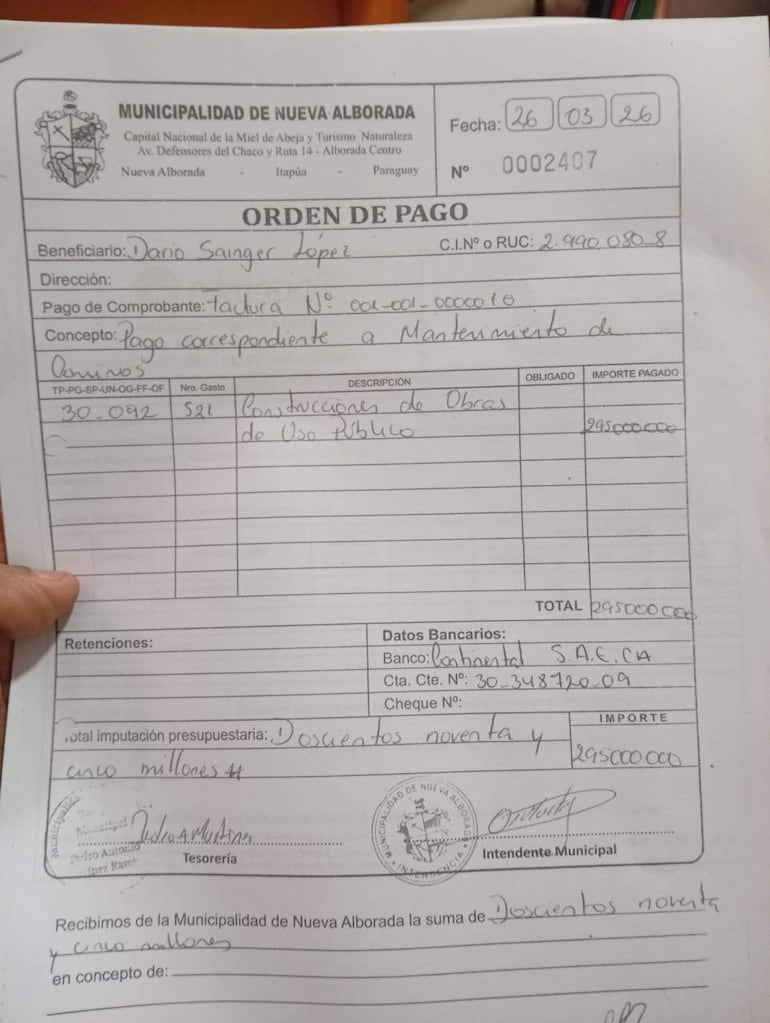 MUNICIPALIDAD DE NUEVA ALBORADA
Capital Nacional de la Miel de Abeja y Turismo Naturaleza
Av. Defensores del Chaco y Ruta 14 - Alborada Centro
Nueva Alborada - Itapúa - Paraguay
Fecha: 26 03 26
Nº 0002407
ORDEN DE PAGO
Beneficiario: Dario Sainger López C.I.Nº o RUC: 2.990.080-8
Dirección:
Pago de Comprobante: Factura Nº 001-001-0000010
Concepto: Pago correspondiente a Mantenimiento de
Caminos
TP-PG-SP-UN-OG-FF-OF Nro. Gasto DESCRIPCIÓN OBLIGADO IMPORTE PAGADO
30-092 521 Construcciones de Obras
de Uso Público 295000000
TOTAL 295000000
Retenciones:
Datos Bancarios:
Banco: Continental S.A.E.CA
Cta. Cte. Nº: 30-348720-09
Cheque Nº:
Total imputación presupuestaria: Doscientos noventa y
cinco millones #
IMPORTE
295000000
Municipalidad
Pedro Antonio
Tesorería
MUNICIPALIDAD DE NUEVA ALBORADA
INTENDENCIA
Intendente Municipal
Recibimos de la Municipalidad de Nueva Alborada la suma de Doscientos noventa
y cinco millones
en concepto de: